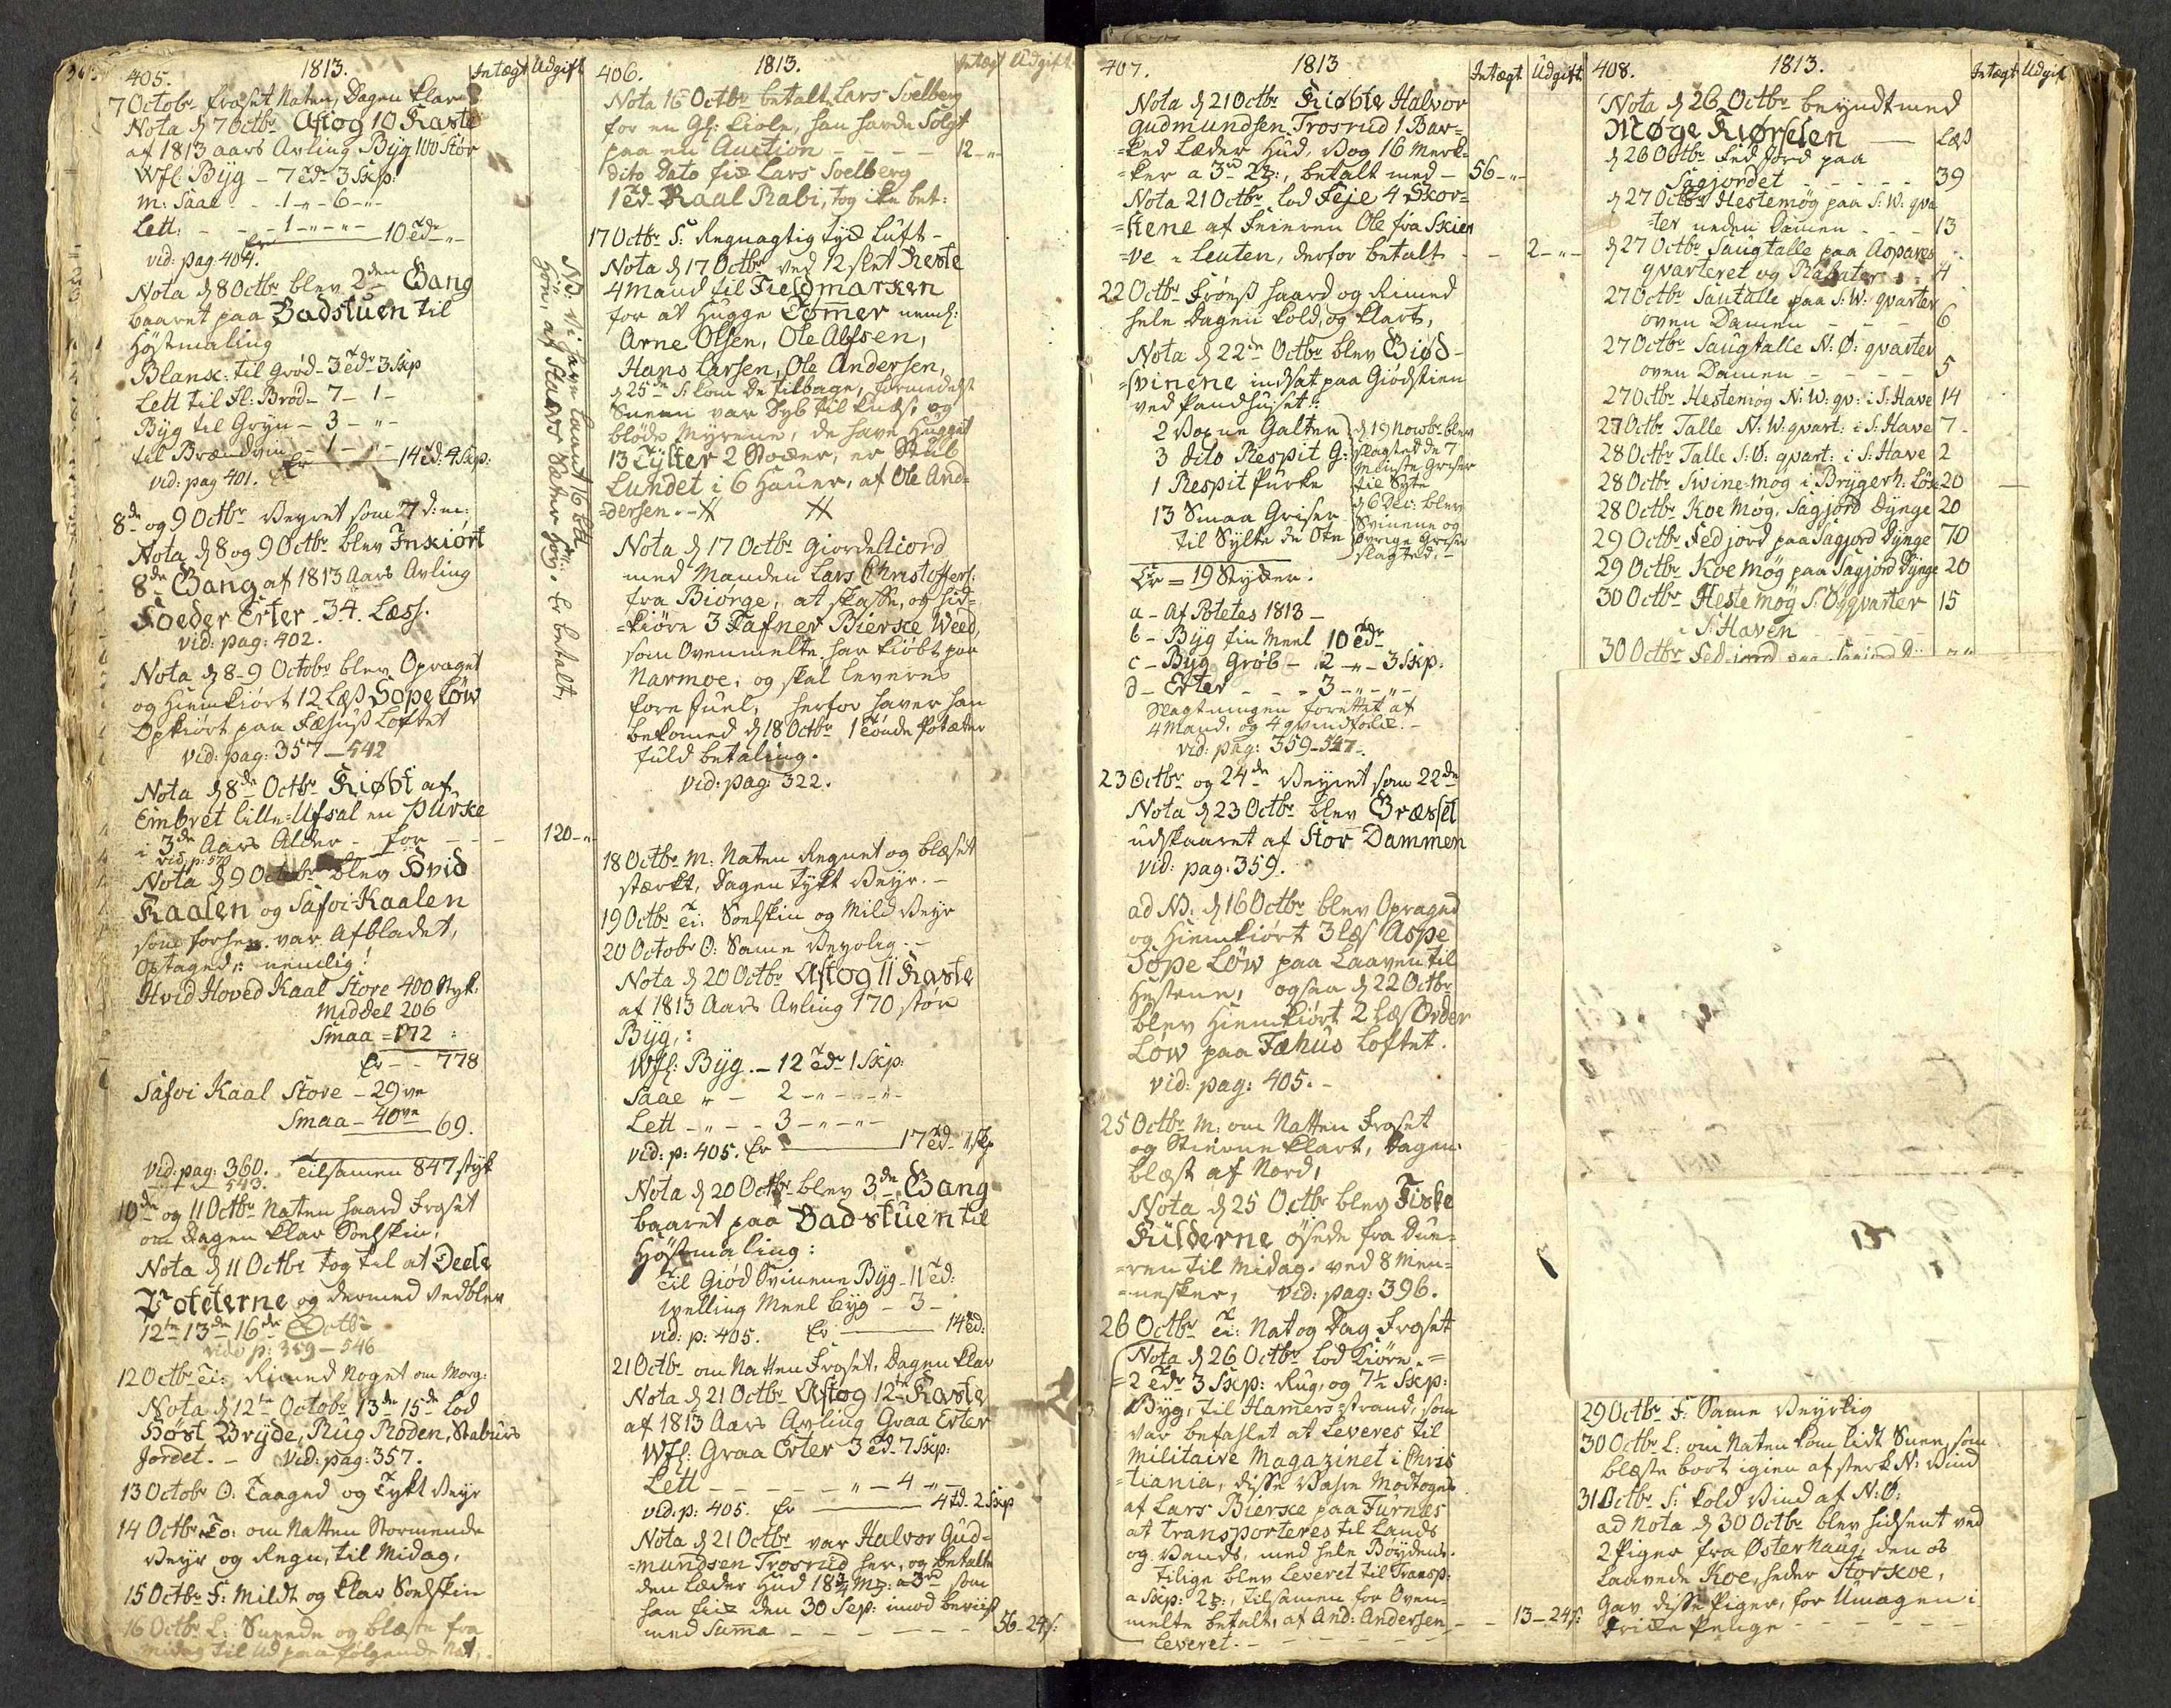 405. 1813. Intægt Udgift
7 Octobr froset Naten, Dagen klar
Nota d 7 Octbr Aftog 10 Raste
af 1813 aars Avling Byg 100 Stör
Wfl: Byg - 7 Tdr 3 Skp:
m: Saae - - 1 - „ - 6 - „ -
Lett: - - - 1 - „ - „ -
Er 10 Tdr „
vid: pag 404.
Nota d 8 Octbr blev 2den Gang
baaret paa Badstuen til
Höstmaling
Blank: til Gröd - 3 Tdr 3 Skp
Lett til Fl: Bröd - 7 - 1 -
Byg til Gryn - 3 - „ -
til Brændvin - 1 - „ -
Er 14 Td: 4 Skp:
vid: pag 401.
8de og 9 Octbr Veyret som 7 d: m:
Nota d 8 og 9 Octbr blev Inkiört
8de Gang af 1813 Aars Avling
Foeder Erter - 34. Læss.
vid: pag: 402.
Nota d 8-9 Octobr blev Opraget
og Hiemkiört 12 Læs Sope Löw
Opkiört paa Fæhuus Loftet
vid: pag: 357 - 542
Nota d 8de Octbr Kiøbt af
Embret Lille-Ulfsal en Purke
i 3de Aars Alder - for - - - 120 - „
vid: p: 57
Nota d 9 Octobr blev Hvid
Kaalen og Safoi-Kaalen
som forhen var Afbladet,
Optaged: nemlig!
Hvid Hoved Kaal Store 400 Styk:
Middel 206
Smaa = 172 :
Er - - 778
Safoi Kaal Store - 29 ve
Smaa - 40 ve 69.
vid: pag: 360. Tilsamen 847 styk
543.
10de og 11 Octbr Naten haard Froset
om Dagen klar Soelskin.
Nota d 11 Octbr tog til at Deele
Poteterne og dermed vedblev
12te 13de 16de Octbr
vide p: 359 - 546
12 Octbr Ti: Rimed Noget om Morg:
Nota d 12te Octobr 13de 15de lod
Höst Bryde, Rug Roden, Stabürs
Jordet. - vid: pag: 357.
13 Octobr O: Taaged og Tykt Veyr
14 Octbr To: om Natten Stormende
Veyr og Regn, til Midag,
15 Octbr F: Mildt og klar Soelskin
16 Octbr L: Sneede og blæste fra
Midag til Ud paa følgende Nat,
406. 1813. Intægt Udgift
Nota 16 Octbr betalt Lars Soelberg
for en Gl: Kiole, han havde Solgt
paa en Auction - - - - 12 - „ -
dito Dato fik Lars Soelberg
1 Td Kaal Rabi, tog ike bet:
17 Octbr S: Regnagtig Tyk Luft -
Nota d 17 Octbr ved 12 slet Reste
4 Mand til Fieldmarken
for at Hugge Tømer neml:
Arne Olsen, Ole Alfsen,
Hans Larsen, Ole Andersen,
d 25de S: kom De tilbage, formedelst
Sneen var Dyb til knæs, og
bløde Myrene, de have Hugget
13 Tylter 2 Stoker, er Stub
Lundet i 6 Hauer, af Ole And-
=dersen. -
Nota d 17 Octbr Giorde Acord
med Manden Lars Christoffers:
fra Biørge, at skaffe, og hid-
=kiöre 3 Fafner Bierke Weed,
som Ovenmelte har kiöbt paa
Narmoe, og skal leveres
fore Juel, herfor haver han
bekomed d 18 Octbr 1 Tönde Potæter
fuld betaling.
vid: pag: 322.
NB: Vi have laant 16 bte
af Staars Sæter . Er betalt,
18 Octbr M: Naten Regnet og blæset
stærkt, Dagen Tykt Veyr. -
19 Octbr Ti: Soelskin og Mild Veyr
20 Octobr O: Same Veyrlig. -
Nota d 20 Octbr Aftog 11 Raste
af 1813 Aars Avling 170 stör
Byg, :
Wfl: Byg. - 12 Tdr 1 Skp:
Saae „ - 2 - „ - „ -
Lett - „ - - 3 - „ - „ -
vid: p: 405. Er 17 Td 1 Skp
Nota d 20 Octbr blev 3de Gang
baaret paa Badstuen til
Höstmaling:
Til Giød Svinene Byg - 11 Td:
Welling Meel Byg - 3 -
vid: p: 405. Er 14 Td:
21 Octbr om Natten Froset, Dagen klar
Nota d 21 Octbr Aftog 12te Raste
af 1813 Aars Avling Graa Erter
Wfl: Graa Erter 3 Td. 7 Skp:
Lett - - - - - - „ - 4 - „ -
vid: p: 405. Er 4 Td. 2 Skp
Nota d 21 Octbr var Halvor Gud-
=mundsen Trosrud her, og betalte
den Læder Hud 18 3/4 : a 3rd som
han fik den 30 Sep: imod beviis
med Suma - - - - - - 56 - 24 s:
407. 1813 Intægt Udgift
Nota d 21 Octbr Kiøbte Halvor
Gudmundsen Trosrud 1 Bar=
=ked Læder Hud, Vog 16 Merk=
=ker a 3rd , betalt med - 56 - „ -
Nota 21 Octbr lod Feje 4 Skor=
=stene af Feieren Ole fra Skier
=ve i Leuten, derfor betalt - - 2 - „ -
22 Octbr Frönß haard og Rimed
hele Dagen kold, og klart,
Nota d 22de Octbr blev Giød-
=svinene indsat paa Giödstien
ved Pandhuset:
2 Voxne Galter
3 dito Respit G:
1 Respit Purke
13 Smaa Griser
til Sylte de Ote
d 19 Nowbr blev
slagted de 7
Minste Griser
til Sylte
d 6 Dec: blev
Svinene og
øvrige Griser
slagted. -
Er = 19 Stykker.
a - Af Potetes 1813 -
b - Byg fin Meel 10 Tdr
c - Byg Gröb - 12 - „ - 3 Skp:
d - Erter - - - 3 - „ - „ -
Slagtningen forettet af
4 Mand, og 4 qvindfolk. -
vid: pag: 359 - 547 -
23 Octbr og 24de Veyret som 22de
Nota d 23 Octbr blev Græsset
udskaaret af Stor Dammen
vid: pag: 359.
ad NB: d 16 Octbr blev Opraged
og Hiemkiört 3 læs Aspe
Sope Löw paa Laaven til
Hestene, ogsaa d 22 Octbr
blev Hiemkiört 2 Læs Order
Löw paa Fæhus Loftet.
vid: pag: 405. -
25 Octbr M: om Natten Froset
og Stierne klart, Dagen
blæst af Nord,
Nota d 25 Octbr blev Fiske
Külderne ösede fra Due-
=ren til Midag. ved 8 Men=
=nesker, vid: pag: 396.
26 Octbr Ti: Nat og Dag Froset
Nota d 26 Octbr lod Kiöre. =
= 2 Tdr 3 Skp: Rug, og 7 1/2 Skp:
Byg, til Hamers-strand, som
var befahlet at leveres til
Militaire Magazinet i Chris
=tiania, disse Vahre Modtoges
af Lars Bierke paa Furnæs
at transporteres til Lands
og Vands, med hele Boydens.
tilige blev leveret til Transp:
a Skp: 2 , tilsamen for Oven=
melte betalt, af And: Andersen - - 13 - 24 s:
leveret. - - - - - -
408. 1813. Intægt Udgift
Nota d 26 Octbr begyndt med
Møge Kiørselen - Læs
d 26 Octbr Fed jord paa
Sagjordet - - - - 39
d 27 Octbr Hestemög paa S: W: qva
=ter neden Damen - - - 13
d 27 Octbr Saugtalle paa Aspares
qvarteret og Rabater - - 4
27 Octbr Sautalle paa S: W: qvarter
oven Damen - - - 6
27 Octbr Saugtalle N: Ø: qvarter
oven Damen - - - - 5
27 Octbr Hestemög N: W: qv: i S: Have 14
27 Octbr Talle N: W: qvart: i S: Have 7 -
28 Octbr Talle S: Ø: qvart: i S: Have 2
28 Octbr Svine-Mög i Brygerh: Löke 20
28 Octbr Koe Møg, Sagjord Dynge 20
29 Octbr Fed jord paa Sagjord Dynge 70
29 Octbr Koe Møg paa Sagjord Dynge 20
30 Octbr Heste møg S: O: qvarter 15
i S: Haven
30 Octbr Fed jord paa Sagjord
15
29 Octbr F: Same Veyrlig
30 Octbr L: om Naten kom lidt Snee, som
blæste bort igien af sterk N: Vind
31 Octbr S: kold Vind af N: O:
ad Nota d 30 Octbr blev hidsent ved
2 Piger fra Øster Haug, den os
Laavede Koe, heder Storkoe,
Gav disse Piger, for Umagen i
Drikke Penge - - - - - -